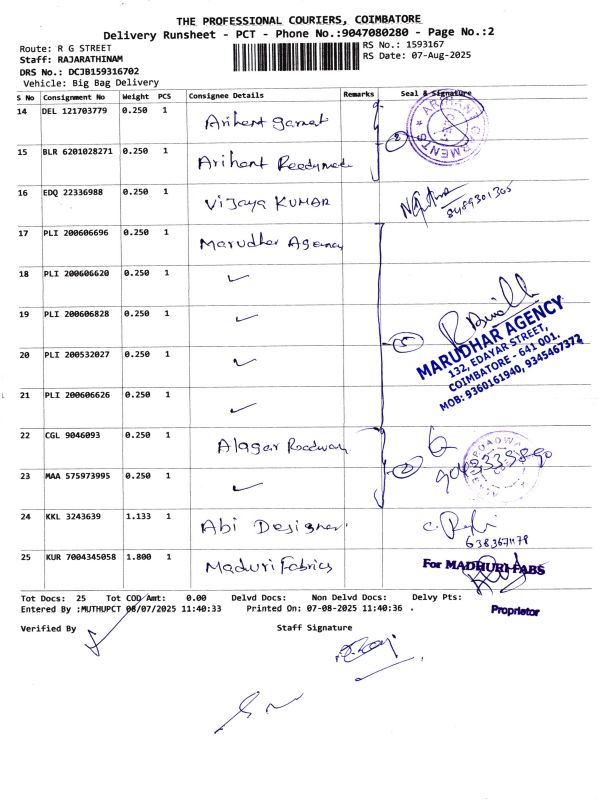 THE PROFESSIONAL COURIERS, COIMBATORE
Delivery Runsheet - PCT - Phone No.:9047080280 - Page No.:2
Route: R G STREET
RS No.: 1593167
Staff: RAJARATHINAM
RS Date: 07-Aug-2025
DRS No.: DCJB159316702
Vehicle: Big Bag Delivery
S No Consignment No Weight PCS Consignee Details Remarks Seal & Signature
14 DEL 121703779 0.250 1 Arihant garmet 2
ARIHANT GARMENTS
15 BLR 6201028271 0.250 1 Arihant Readymade
16 EDQ 22336988 0.250 1 Vijaya KUMAR 8489301305
17 PLI 200606696 0.250 1 Marudhar Agency
18 PLI 200606620 0.250 1 ✓
19 PLI 200606828 0.250 1 ✓
20 PLI 200532027 0.250 1 ✓ 5
MARUDHAR AGENCY
132, EDAYAR STREET,
COIMBATORE - 641 001.
MOB: 9360161940, 9345467372
21 PLI 200606626 0.250 1 ✓
22 CGL 9046093 0.250 1 Alagar Roadway
23 MAA 575973995 0.250 1 ✓ 2
24 KKL 3243639 1.133 1 Abi Designer.
25 KUR 7004345058 1.800 1 Maduri Fabrics
For MADHURI FABS
Proprietor
Tot Docs: 25 Tot COD Amt: 0.00 Delvd Docs: Non Delvd Docs: Delvy Pts:
Entered By :MUTHUPCT 08/07/2025 11:40:33 Printed On: 07-08-2025 11:40:36 .
Verified By
Staff Signature